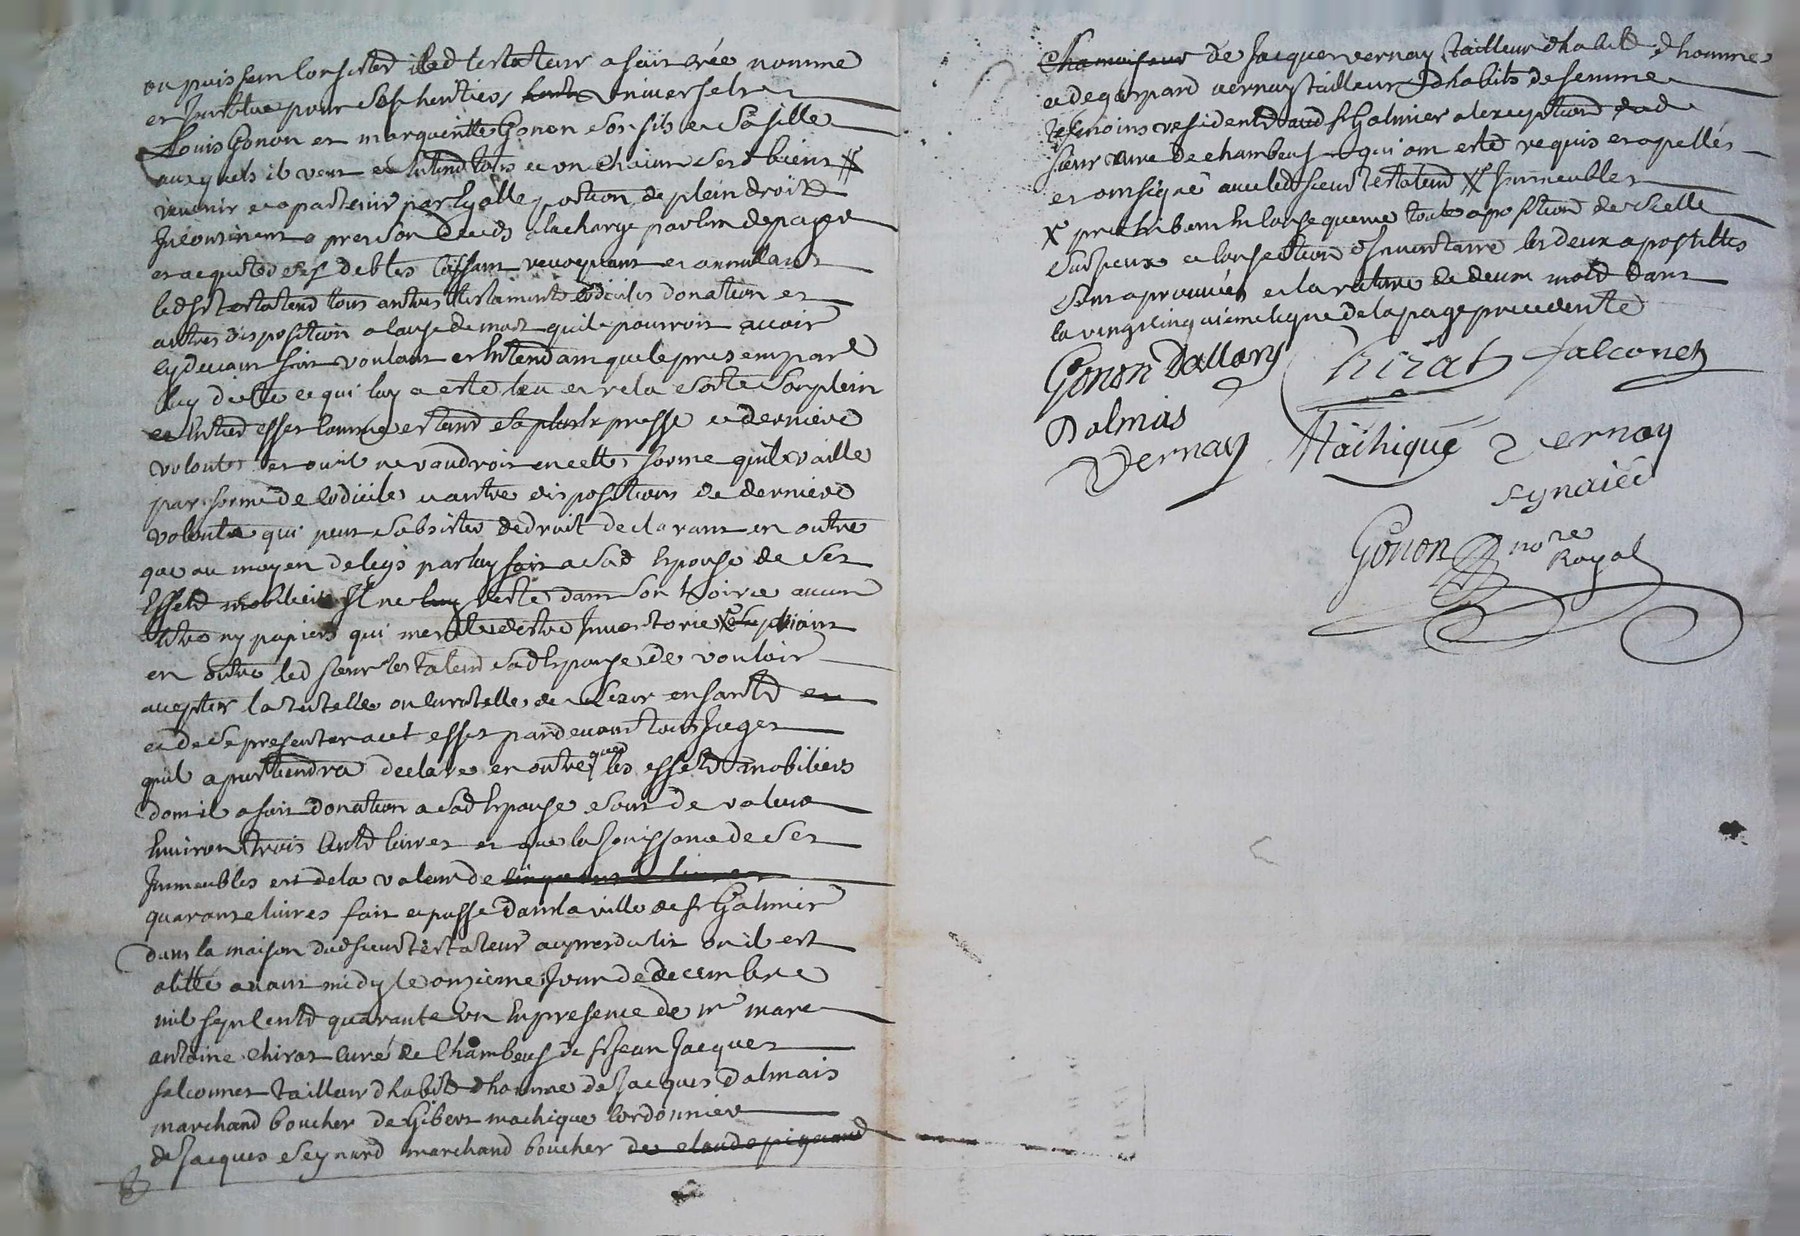 ou puissent consister led testateur a fait crée nomme
et Institue pour ses heritiers universels
Louis Gonon et margueritte Gonon son fils et sa fille
auxquels il veut et entend tous et un chacun ses d biens #
venir et apartenir par Egalle portion de plein droit
Incontinent apres son deceds a la charge par eux de payer
et acquiter ses debtes cassant revoquant et annulant
led sr testateur tous autres testaments codiciles donation et
autres disposition a cause de mort quil pourroit avoir
cy devant fait voulant et entendant que le present par
luy dicté et qui luy a esté leu et relu sorte son plein
et entier effet comme estant sa plus expresse et derniere
volonté et ou il ne vaudroit en cette forme quil vaille
par forme de codicile et autre disposition de derniere
volonté qui peut subsister de droit declarant en outre
que au moyen de legs par luy fait a sad Epouse de ses
Effets mobiliers Il ne reste dans son hoirie aucun
titre ny papiers qui merite destre Inventorié X priant
en outre led sieur testateur sad Epouse de vouloir
accepter la tutelle ou curatelle de ses enfants
et de se presenter a cet effet pardevant tous Juges
quil apartiendra declare en outre que les effets mobiliers
dont il a fait donation a sad Epouse sont de valeur
Environ trois cents livres et que la Jouissance de ses
Immeubles est de la valeur de cinquante livres
quarante livres fait et passé dans la ville de st Galmier
dans la maison dud sieur testateur aupres du lit ou il est
alitté avant midy le onzieme Jour de decembre
mil sept cents quarante un En presence de mre marc
antoine chirat curé de Chambeuf de sr Jean Jacques
falconnet tailleur dhabits dhomme de Jacques Dalmais
marchand boucher de Gibert machique cordonnier
de Jacques Seynard marchand boucher de claude pignard
Chamoiseur de Jacques vernay tailleur dhabits dhomme
et de gaspard vernay tailleur dhabits de femme
tesmoins residents aud st Galmier a lexception dud
sieur curé de chambeuf qui ont esté requis et apellés
et ont signé avec led sieur testateur # Immeubles
X prohibant En consequence toute aposition de scellé
sur yceux et confection dInventaire les deux apostilles
sont aprouvées et la rature de deux mots dans
la vingt cinquieme ligne de la page precedente
Gonon Dallary Chirat falconet
Dalmais
Vernay Machique Vernay
Synaied
Gonon nore
Royal